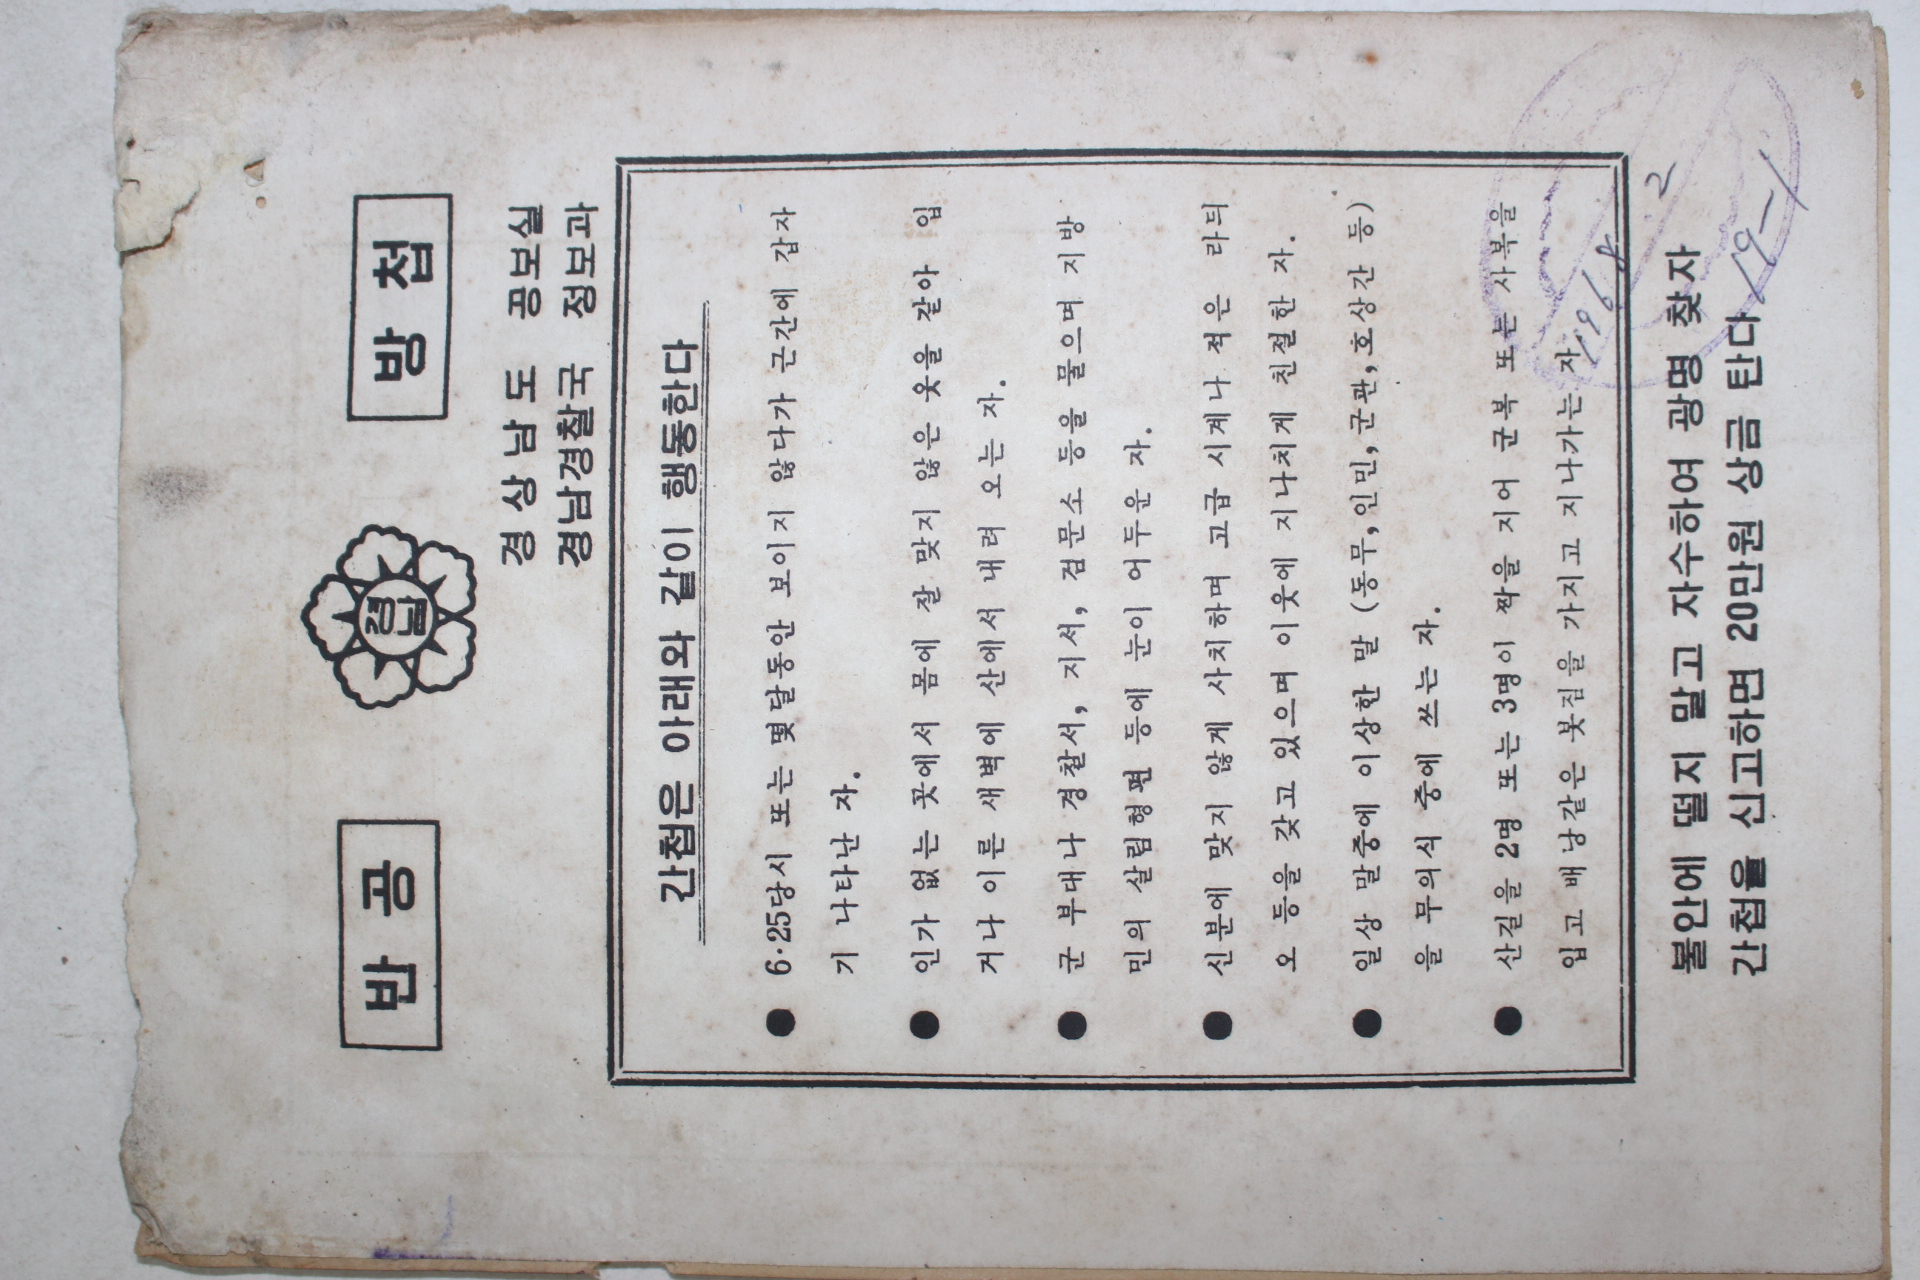 반공
경남
방첩
경상남도 공보실
경남경찰국 정보과
간첩은 아래와 같이 행동한다
● 6·25당시 또는 몇달동안 보이지 않다가 근간에 갑자
기 나타난 자.
● 인가 없는 곳에서 몸에 잘 맞지 않은 옷을 갈아 입
거나 이른 새벽에 산에서 내려 오는 자.
● 군 부대나 경찰서, 지서, 검문소 등을 물으며 지방
민의 살림형편 등에 눈이 어두운 자.
● 신분에 맞지 않게 사치하며 고급 시계나 적은 라듸
오 등을 갖고 있으며 이웃에 지나치게 친절한 자.
● 일상 말중에 이상한 말 (동무, 인민, 군관, 호상간 등)
을 무의식 중에 쓰는 자.
● 산길을 2명 또는 3명이 짝을 지어 군복 또는 사복을
입고 배낭같은 봇짐을 가지고 지나가는 자
불안에 떨지 말고 자수하여 광명 찾자
간첩을 신고하면 20만원 상금 탄다